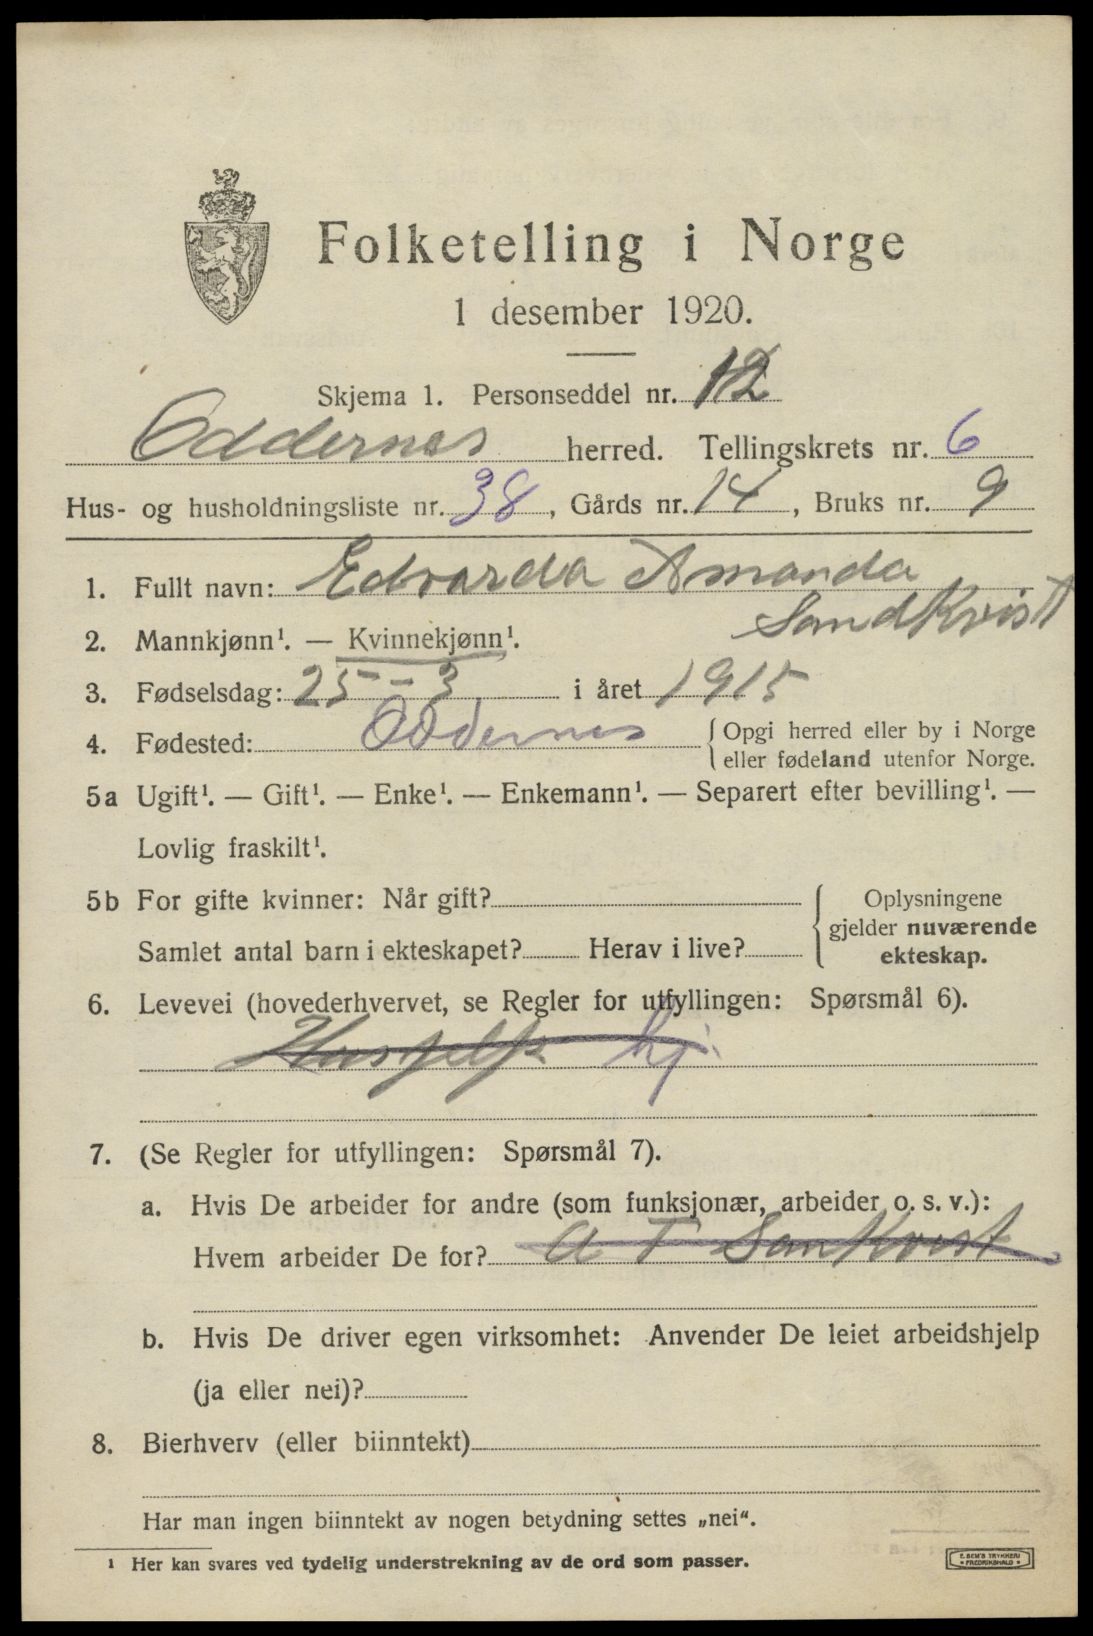 Folketelling i Norge
1 desember 1920.
Skjema 1. Personseddel nr. 12
Oddernes herred. Tellingskrets nr. 6
Hus- og husholdningsliste nr. 38, Gårds nr. 14, Bruks nr. 9
1. Fullt navn: Edvarda Amanda
Sandkvist
2. Mannkjønn¹. — Kvinnekjønn¹.
3. Fødselsdag: 25-3 i året 1915
4. Fødested: Oddernes {Opgi herred eller by i Norge
eller fødeland utenfor Norge.
5a Ugift¹. — Gift¹. — Enke¹. — Enkemann¹. — Separert efter bevilling¹. —
Lovlig fraskilt¹.
5b For gifte kvinner: Når gift? { Oplysningene
gjelder nuværende
Samlet antal barn i ekteskapet? Herav i live?
ekteskap.
6. Levevei (hovederhvervet, se Regler for utfyllingen: Spørsmål 6).
hj.
7. (Se Regler for utfyllingen: Spørsmål 7).
a. Hvis De arbeider for andre (som funksjonær, arbeider o. s. v.):
Hvem arbeider De for? A T Sankvist
b. Hvis De driver egen virksomhet: Anvender De leiet arbeidshjelp
(ja eller nei)?
8. Bierhverv (eller biinntekt)
Har man ingen biinntekt av nogen betydning settes „nei“.
¹ Her kan svares ved tydelig understrekning av de ord som passer.
E. SEM'S TRYKKERI
FREDRIKSHALD